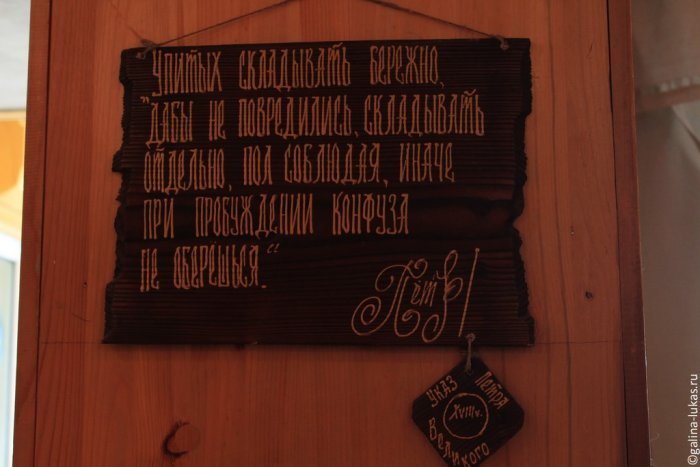 Упитых складывать бережно,
"дабы не повредились, складывать
отдельно, пол соблюдая, иначе
при пробуждении конфуза
не оберёшься."
Пётр I
Указ Петра
XVIII в.
Великого
©galina-lukas.ru